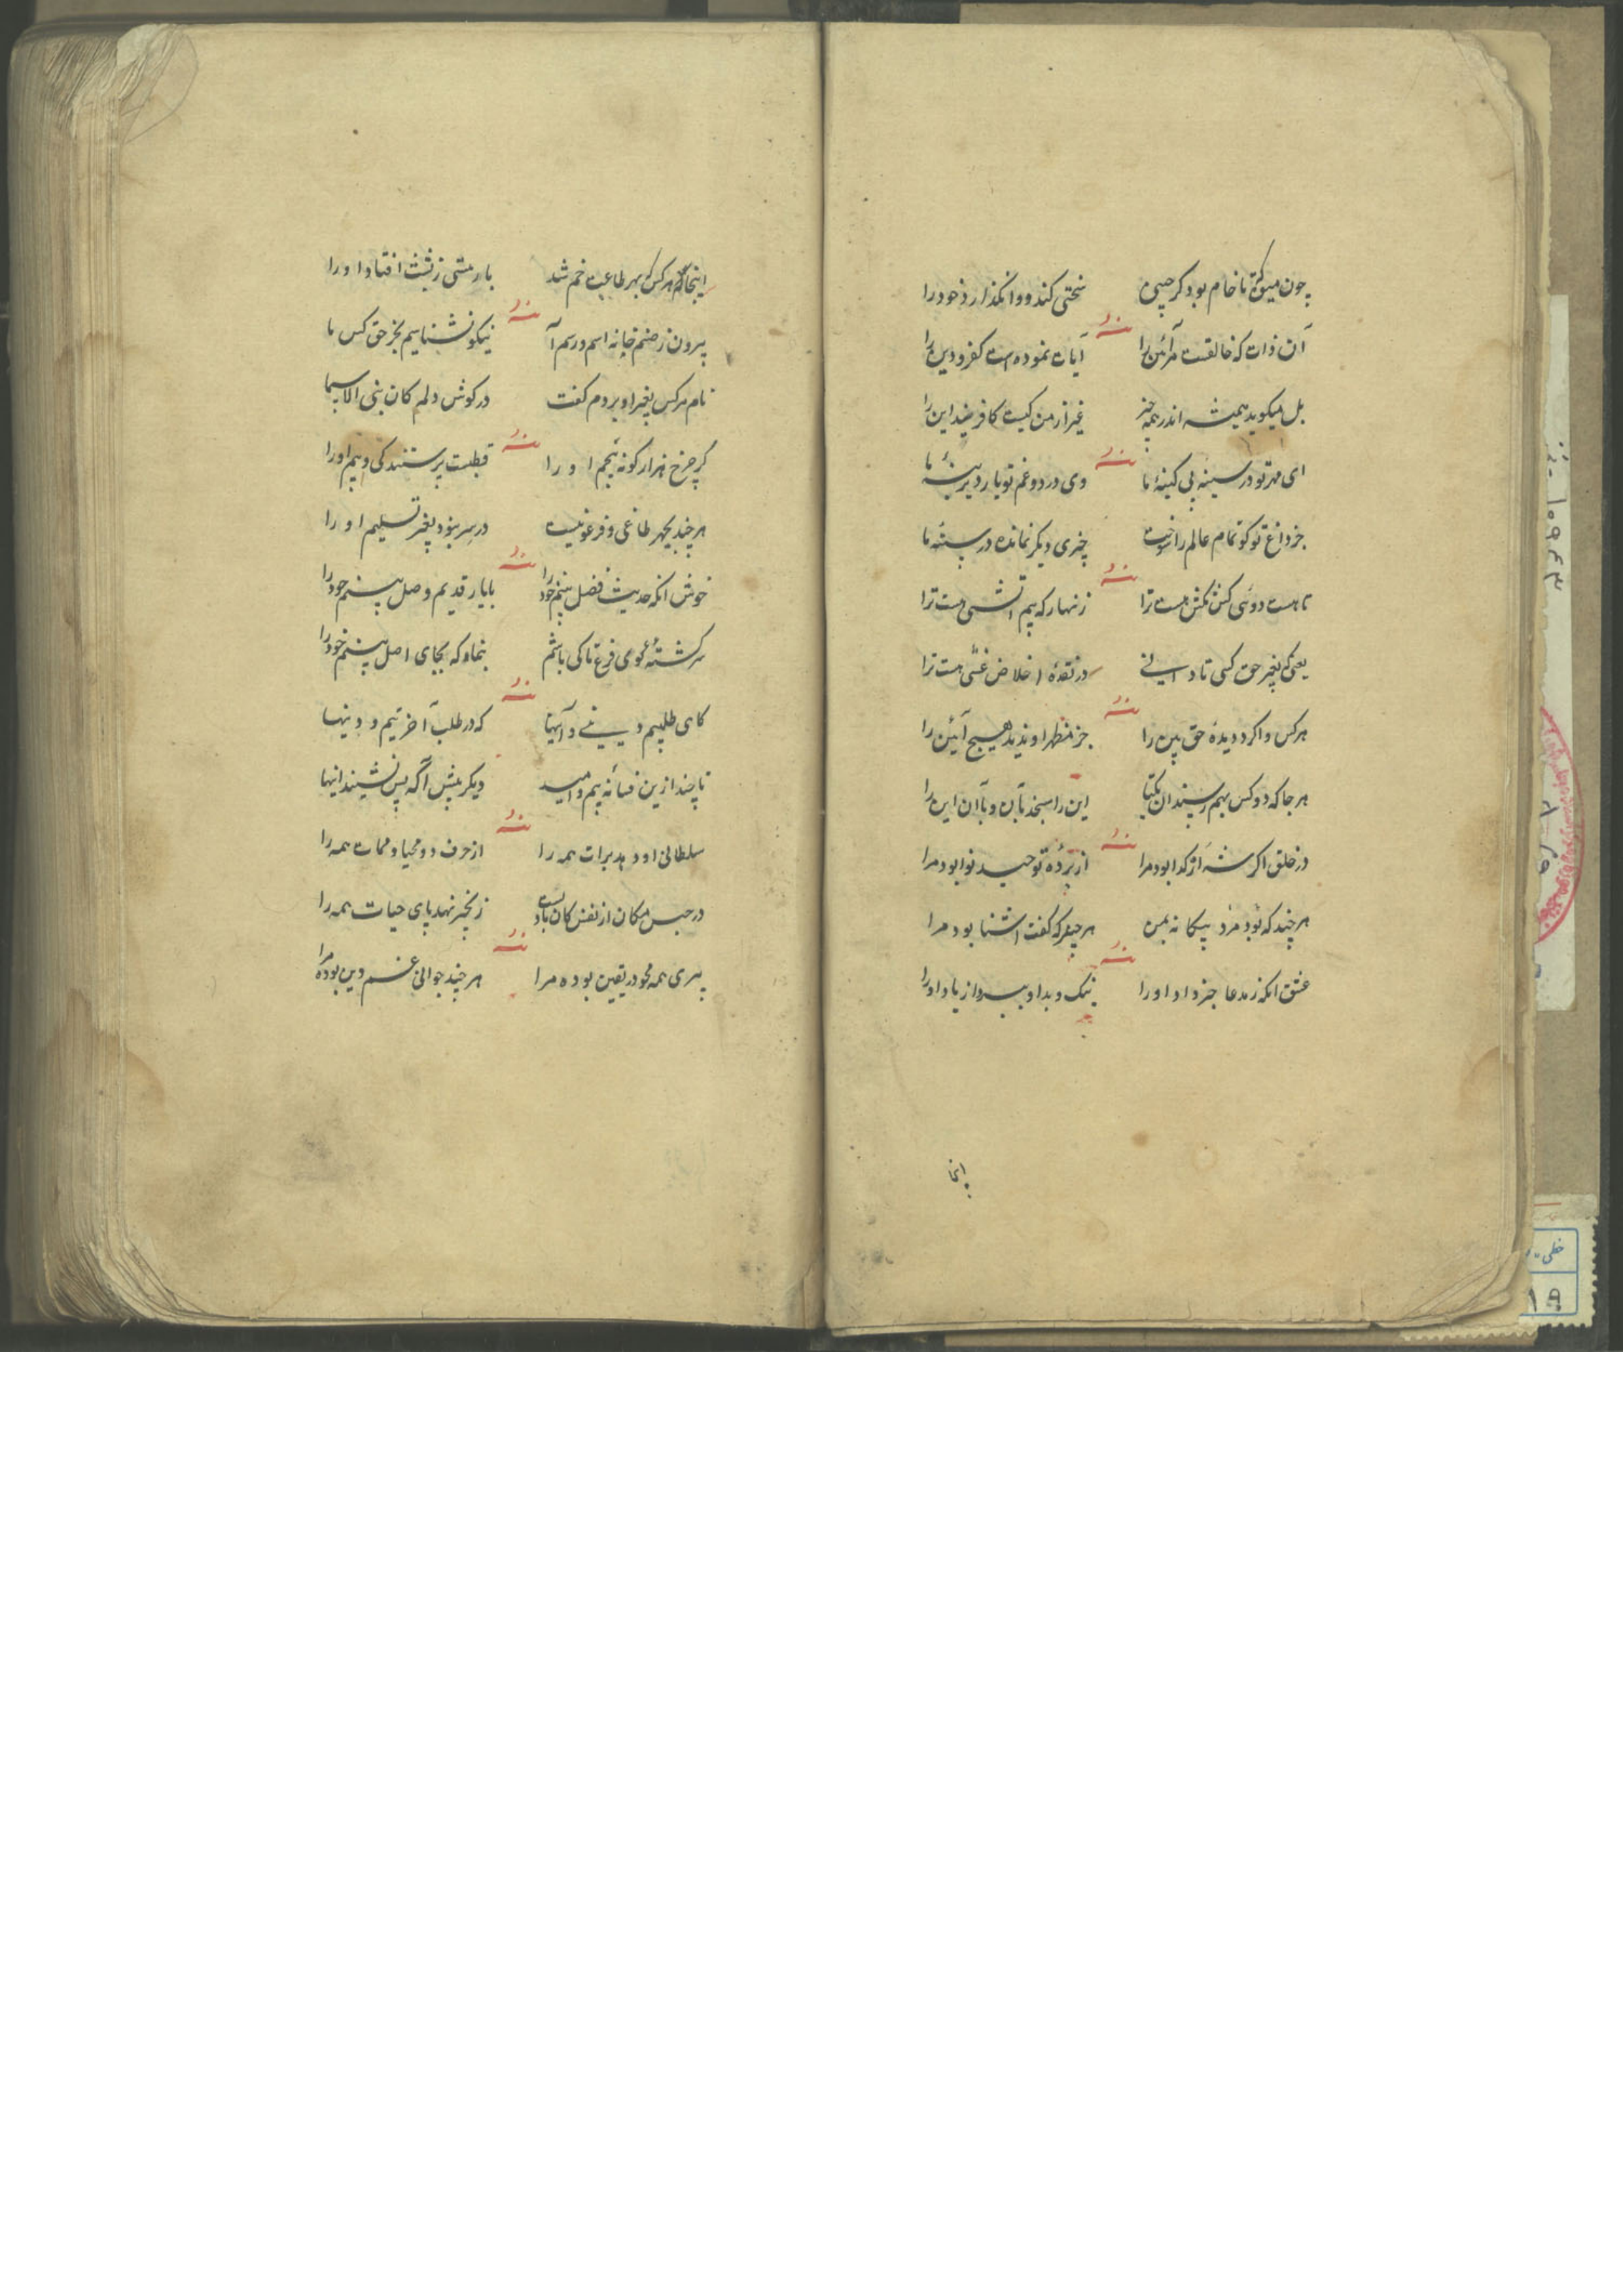 چون میوه تا خام بود کر چپی سختی کند و وانکذارد خود را
منه
آن ذات که خالقست هر آئین را آیات نموده است کفر و دین را
بل میکوید همیشه اندر همه چیز غیر از من کیست کافریند این را
منه
ای مهر تو در سینهٔ بی کینهٔ ما وی درد و غم تو یار دیرینهٔ ما
جز داغ تو کو تمام عالم را سوخت چیزی دیکر نمانده در سینهٔ ما
منه
تا هست دوئی کش مکش هست ترا زنهار که بیم آتشی هست ترا
یعنی که بغیر حق کسی تا دانی در نقدهٔ اخلاص غشی هست ترا
منه
هر کس وا کرد دیدهٔ حق بین را جز مظهر او ندید هیچ آئین را
هر جا که دو کس بهم رسند آن یکتا این را سنجد بآن و با آن این را
منه
در خلق اکر شه ار کدا بود مرا از پردهٔ توحید نوا بود مرا
هر چند که بود مرد بیکانه بمن هر حرف که کفت آشنا بود مرا
منه
عشق آنکه ز مدعا جز داد او را نیک و بد او ببرد از یاد او را
اینجا
اینجا هر کس که بهر طاعت خم شد بار هستی ز پشت افتاد او را
منه
بیرون ز صنم خانهٔ اسم و رسم آ نیکو نشناسیم بجز حق کس ما
نام هر کس بغیر او بردم کفت در کوش دلم کان بنی الاسما
منه
کر چرخ هزار کونه بیم او را قطبست پرستند کی و بیم او را
هر چند بچهر طاغی و فرعونیست در سر نبود بغیر تسلیم او را
منه
خوش آنکه حدیث فضل بینم خود را با یار قدیم وصل بینم خود را
سرکشتهٔ کوی فرع تا کی باشم بنما و که بجای اصل بینم خود را
منه
کاهی طلبیم دینی و آیینها که در طلب آخرتیم و دینها
تا چند ازین فسانهٔ بیم و امید دیکر پیش آ که پس نشیند اینها
منه
سلطانی او دهد برات همه را از حرف دو محیا و ممات همه را
در حبس مکان از نفس کان باد است زنجیر نهد پای حیات همه را
منه
پیری همه محو در یقین بوده مرا هر چند جوانی غم دین بوده مرا
خطی
۱۹